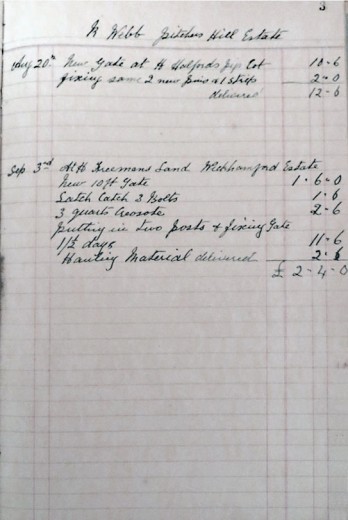 3
W Webb Pitchers Hill Estate
Aug 20th New Gate at H Halfords Cot 10-6
fixing same 2 new 2-0
delivered 12-6
Sep 3rd At H Freemans Land Wickhamford Estate
New 10ft Gate 1-6-0
Latch Catch 3 Bolts 1-6
3 quarts Creosote 2-6
Putting in two posts & fixing Gate
1½ days 11-6
Hauling Material delivered 2-6
£ 2-4-0